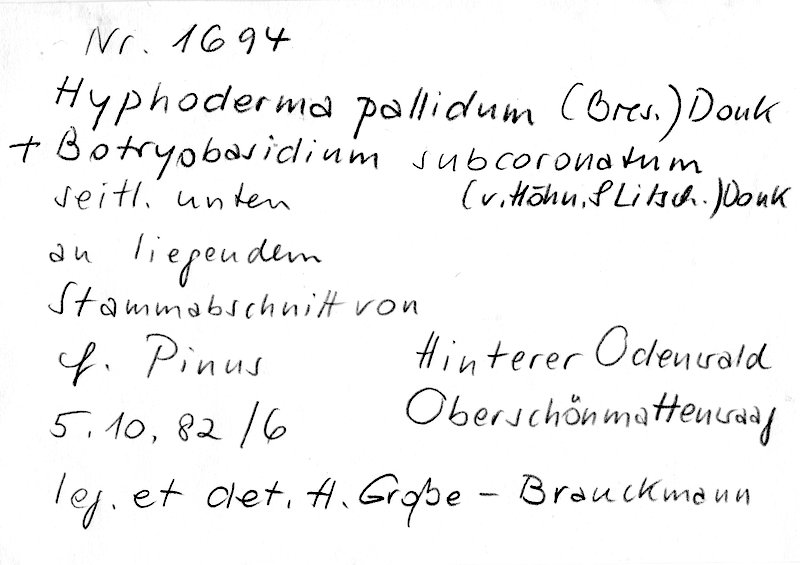 Nr. 1694
Hyphoderma pallidum (Bres.) Donk
+ Botryobasidium subcoronatum
seitl. unten (v. Höhn. & Litsch.) Donk
an liegendem
Stammabschnitt von
cf. Pinus Hinterer Odenwald
5.10.82/6 Oberschönmattenwaag
leg. et det. H. Große-Brauckmann